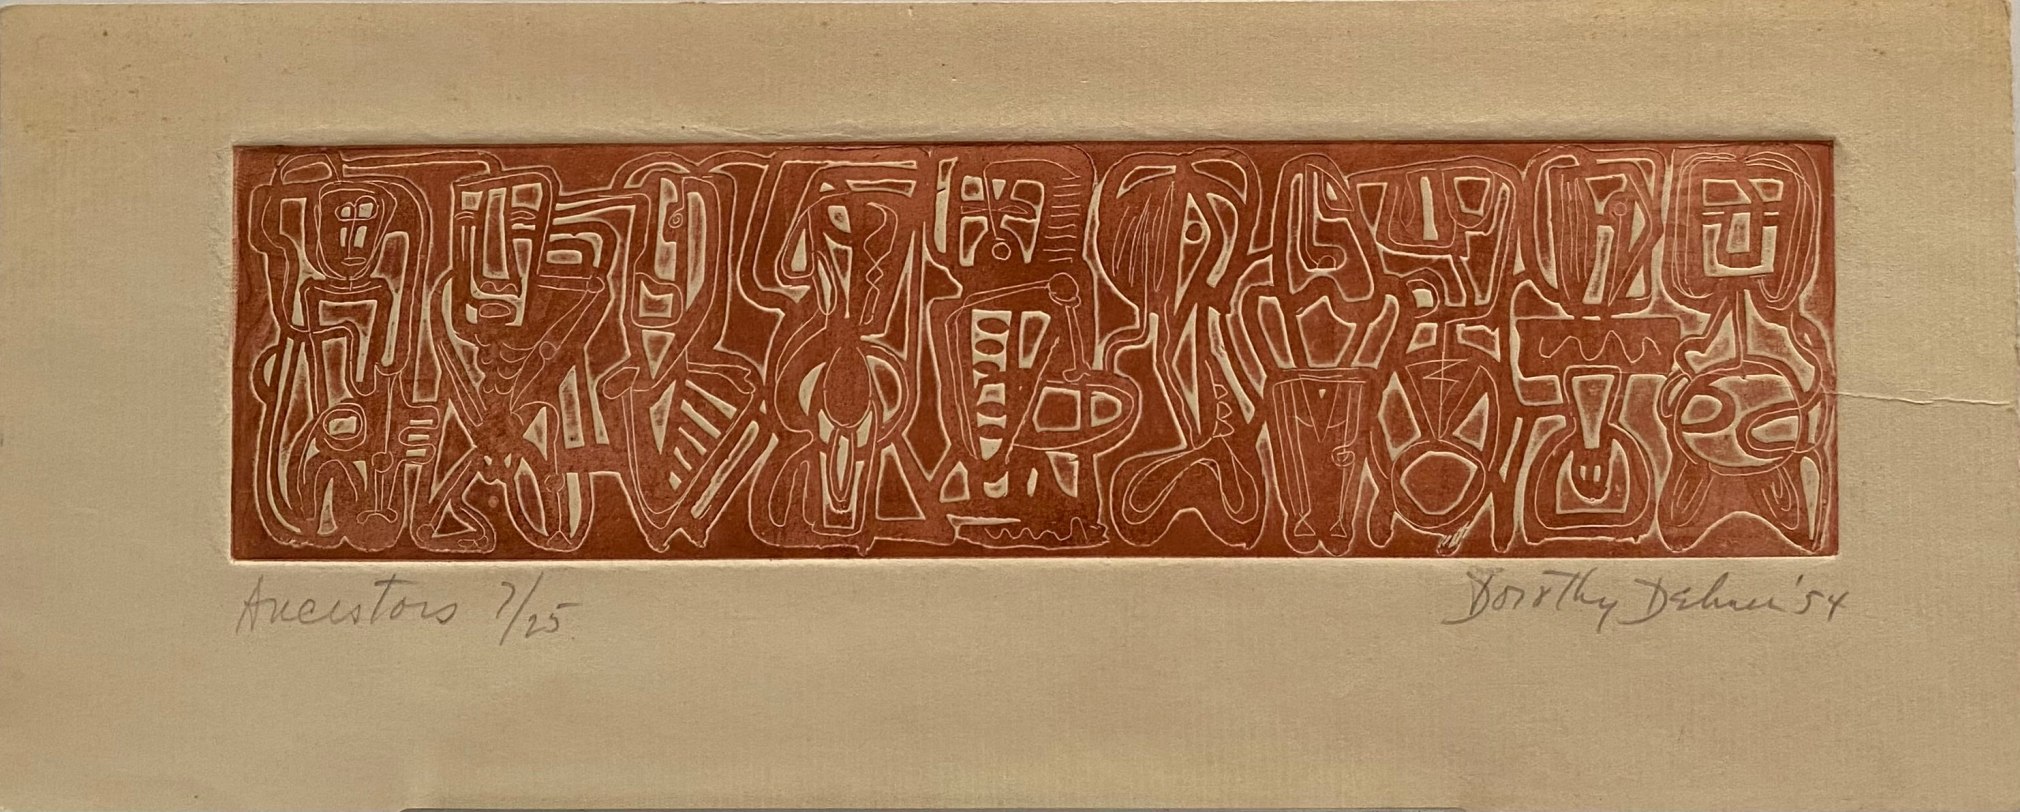 Ancestors 7/25
Dorothy Dehner '54